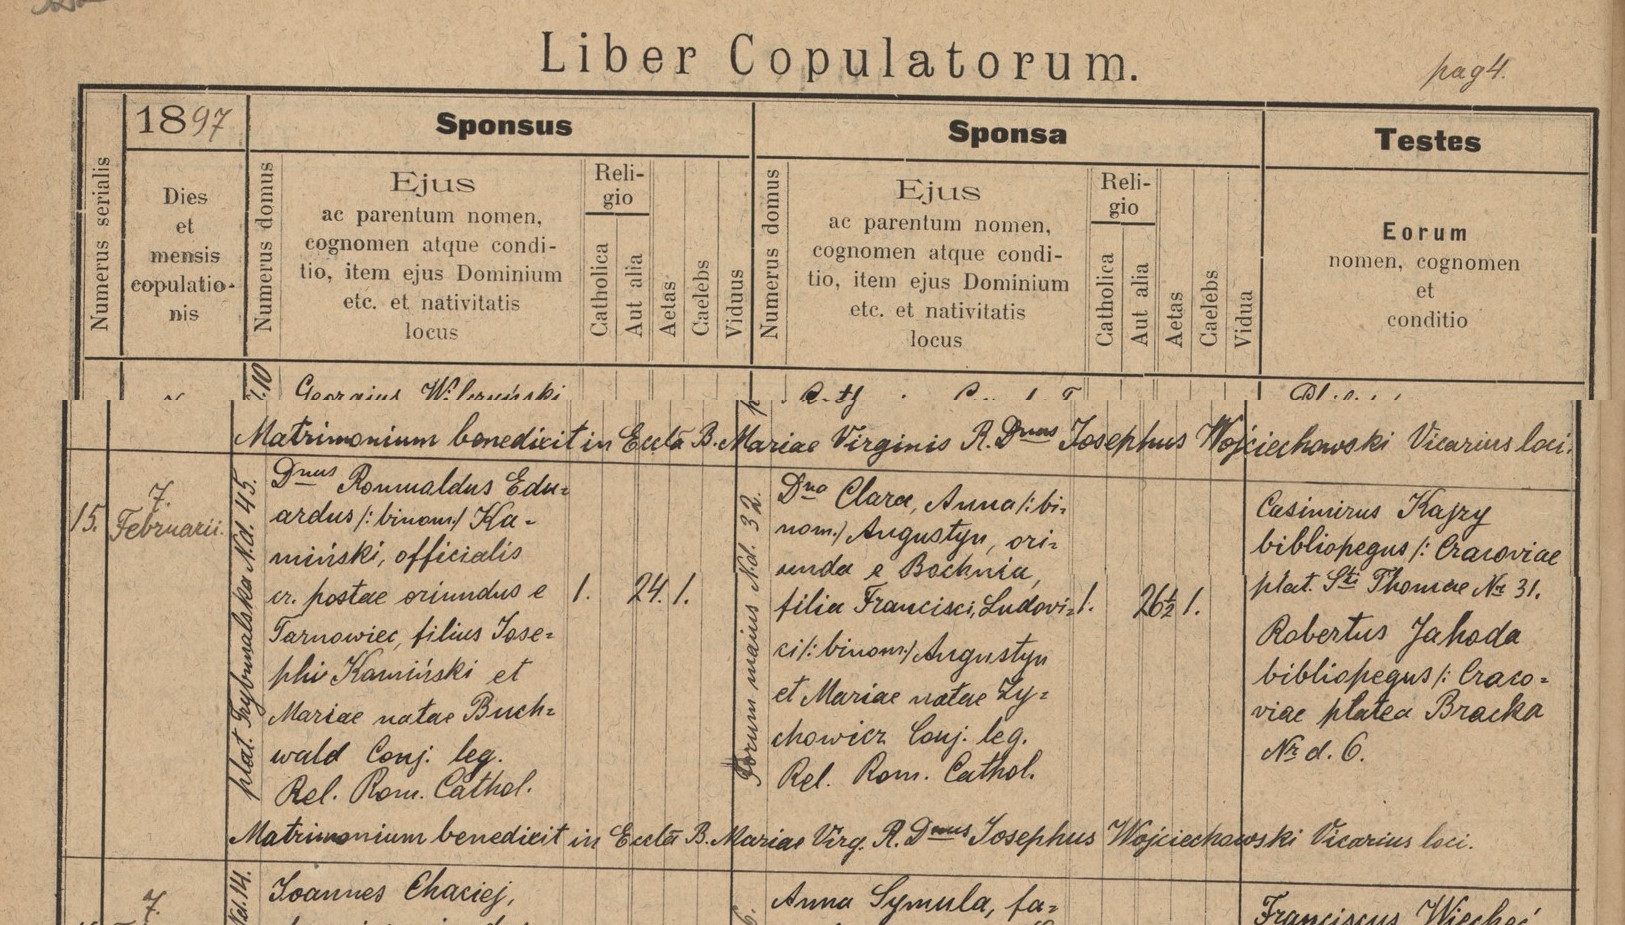 Liber Copulatorum.
pag 4.
1897
Sponsus
Sponsa
Testes
Numerus serialis
Dies
et
mensis
copulatio-
nis
Numerus domus
Ejus
ac parentum nomen,
cognomen atque condi-
tio, item ejus Dominium
etc. et nativitatis
locus
Reli-
gio
Catholica
Aut alia
Aetas
Caelebs
Viduus
Numerus domus
Ejus
ac parentum nomen,
cognomen atque condi-
tio, item ejus Dominium
etc. et nativitatis
locus
Reli-
gio
Catholica
Aut alia
Aetas
Caelebs
Vidua
Eorum
nomen, cognomen
et
conditio
Georgius
Matrimonium benedixit in Eccla B. Mariae Virginis R. Dnus Josephus Wojciechowski Vicarius loci.
15.
7.
Februarii.
plat. Trybunalska N.d. 45.
Dnus Romualdus Edu=
ardus /: binom:/ Ka-
miński, officialis
cr. postae oriundus e
Tarnowiec, filius Jose=
phi Kamiński et
Mariae natae Buch=
wald Conj. leg.
Rel. Rom. Cathol.
1.
24.
1.
Forum maius N.d. 32.
Dna Clara, Anna /: bi-
nom:/ Augustyn, ori=
unda e Bochnia,
filia Francisci, Ludovi=
ci /: binom:/ Augustyn
et Mariae natae Zy=
chowicz Conj. leg.
Rel. Rom. Cathol.
1.
26½
1.
Casimirus Kajzy
bibliopegus /: Cracoviae
plat. Sti Thomae Nr 31.
Robertus Jahoda
bibliopegus /: Craco=
viae platea Bracka
Nr d. 6.
Matrimonium benedixit in Eccla B. Mariae Virg. R. Dnus Josephus Wojciechowski Vicarius loci.
7.
N.d. 14.
Joannes Chaciej,
Anna Symula, fa=
Franciscus Wiecheć